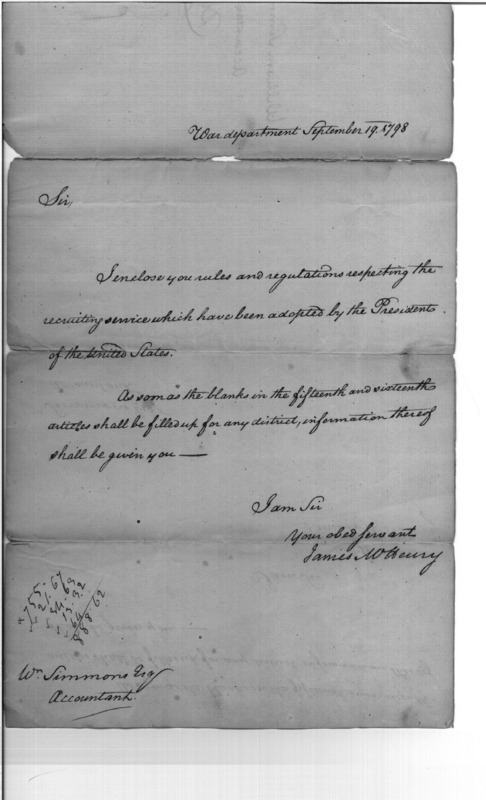 War department September 19. 1798
Sir,
I enclose you rules and regulations respecting the
recruiting service which have been adopted by the President
of the United States.
As soon as the blanks in the fifteenth and sixteenth
articles shall be filled up for any district, information thereof
shall be given you —
I am Sir
Your obed servant
James McHenry
Wm Simmons Esq
Accountant.